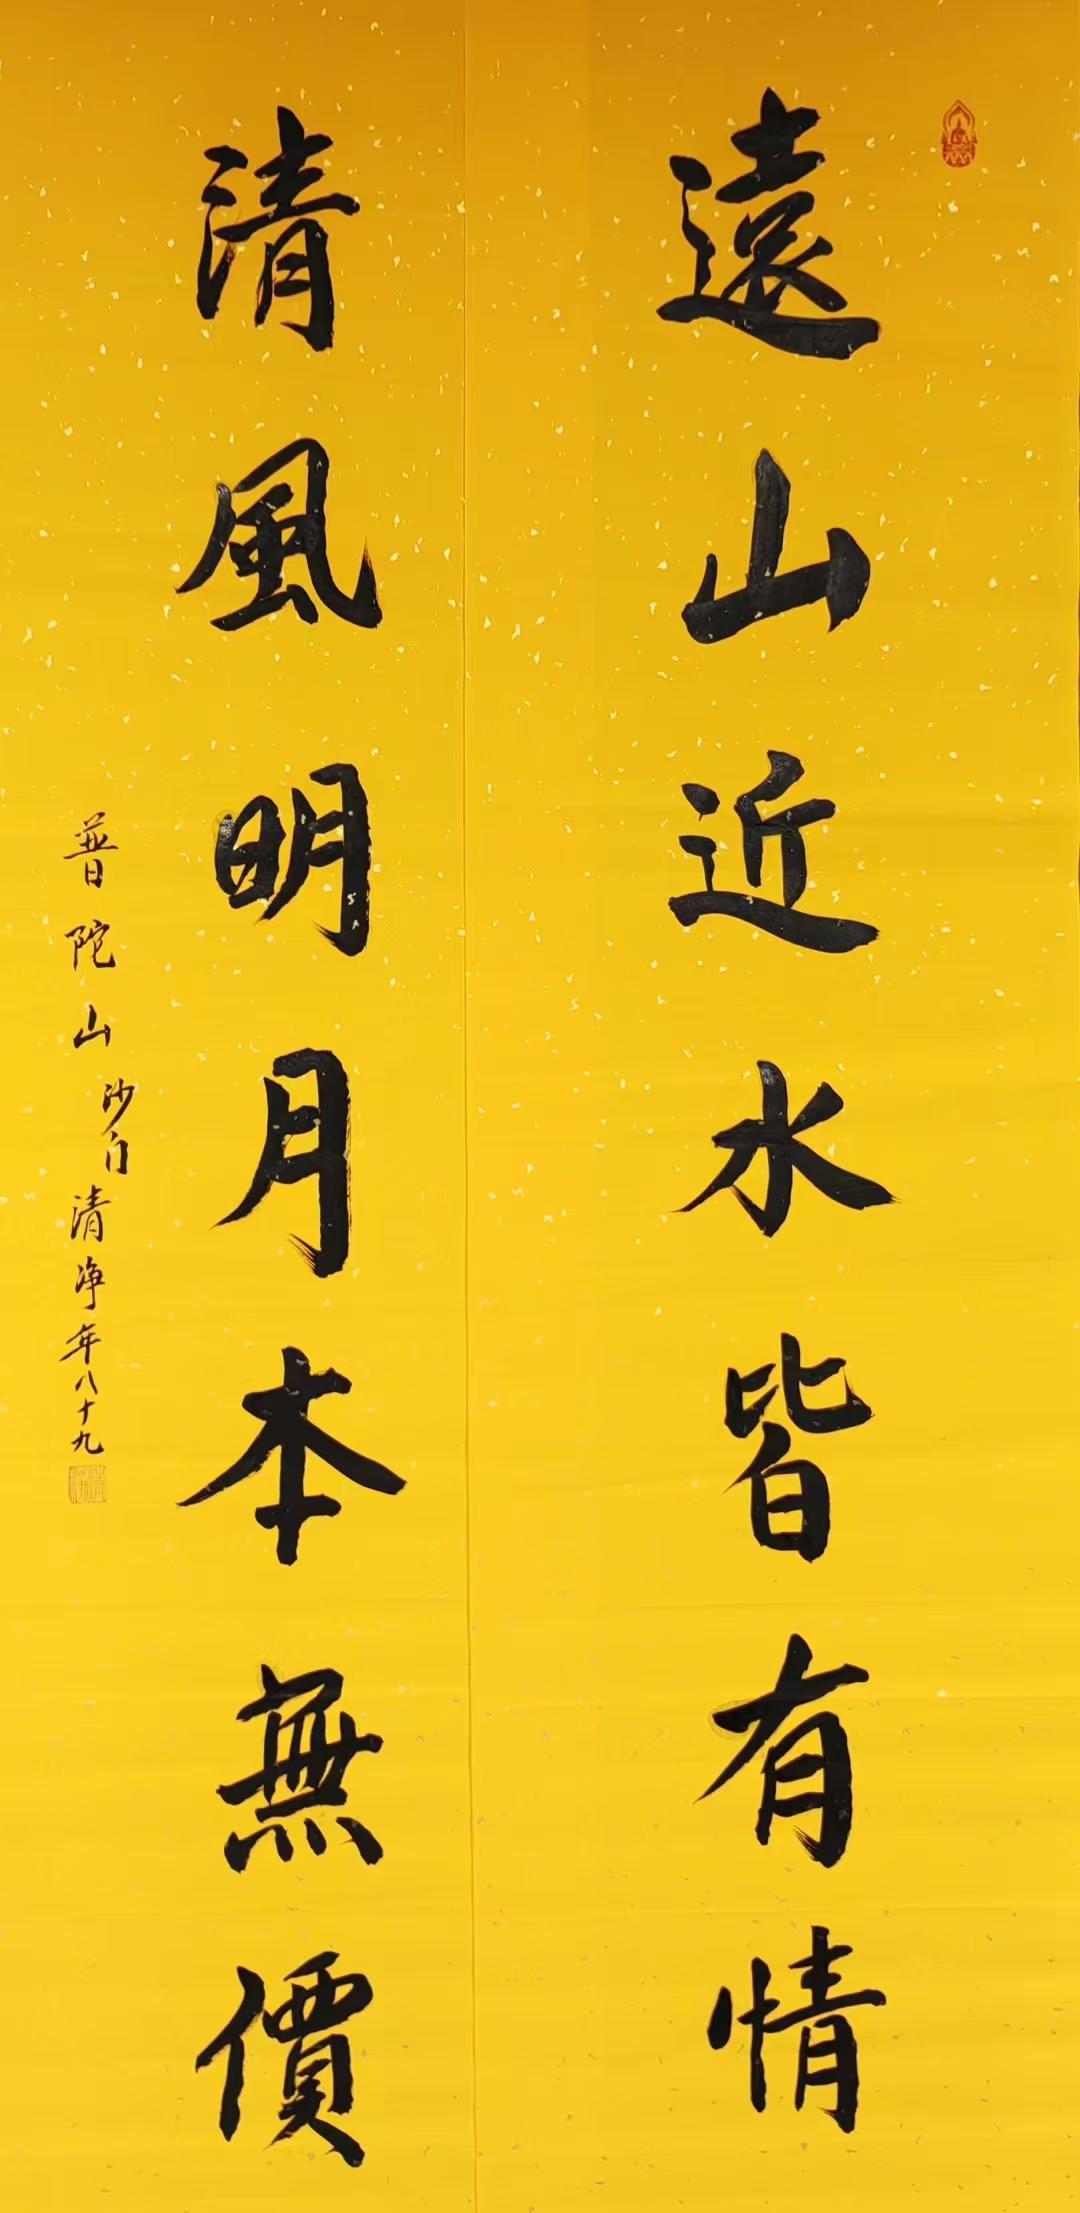 遠山近水皆有情
清風明月本無價
普陀山沙门清净年八十九